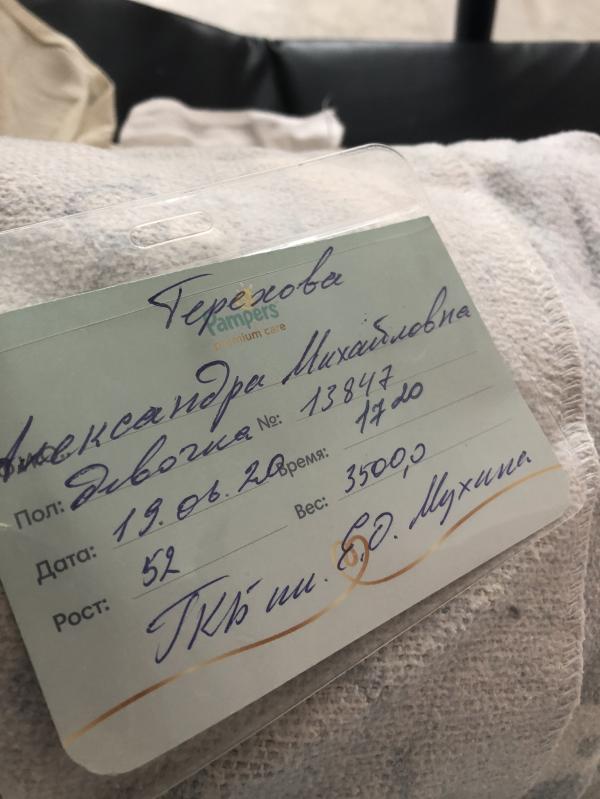 Терехова
Pampers
premium care
Александра Михайловна
Пол: девочка №: 13847
Дата: 19.06.20 Время: 17 20
Рост: 52 Вес: 3500,0
ГКБ им. Е.О. Мухина